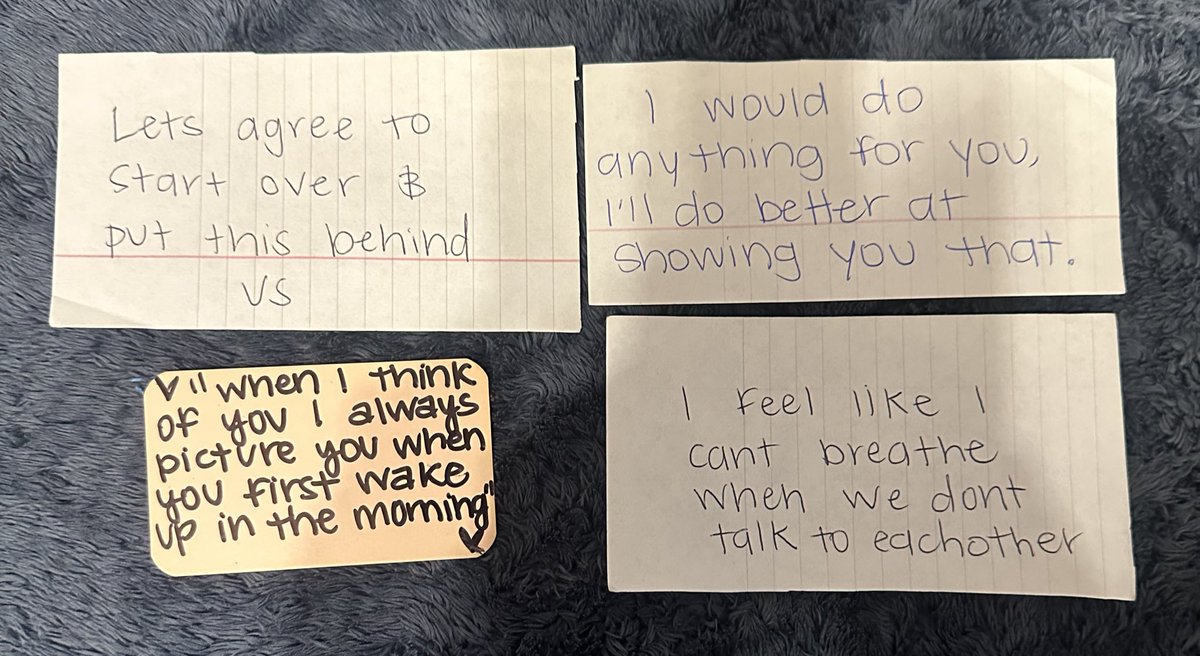 Lets agree to
start over &
put this behind
us
I would do
anything for you,
I'll do better at
showing you that.
♡ "when I think
of you I always
picture you when
you first wake
up in the morning"
♥
I feel like I
cant breathe
when we dont
talk to eachother